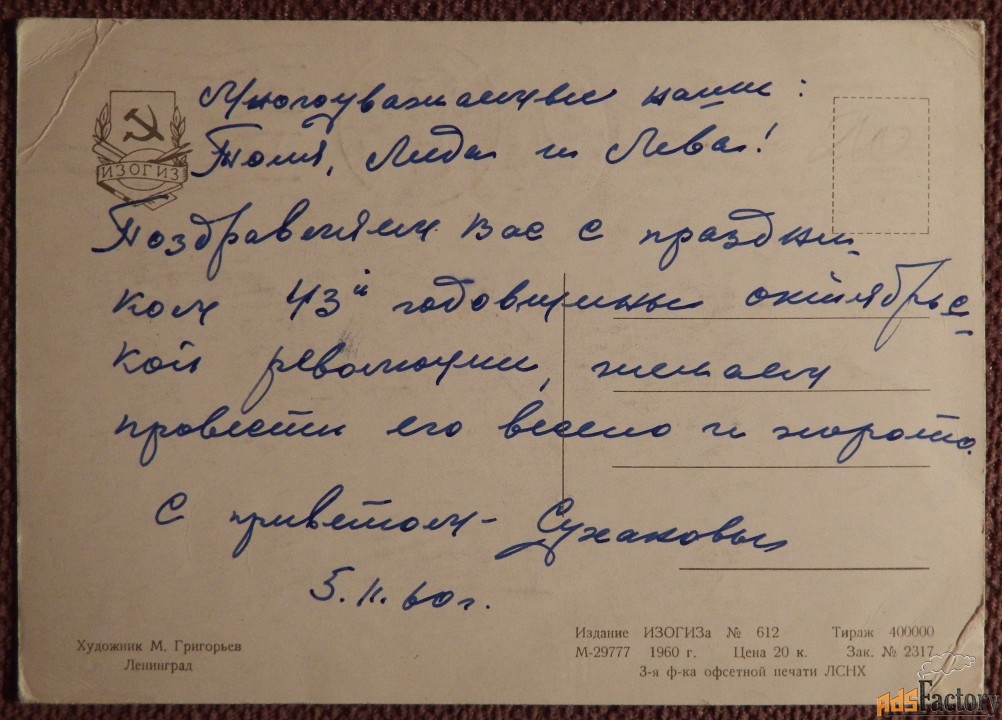 Многоуважаемые наши:
Толя, Лида и Лева!
Поздравляем Вас с праздни-
ком 43й годовщины октябрьс-
кой революции, желаем
провести его весело и хорошо.
С приветом - Сухаковы
5.11.60 г.
ИЗОГИЗ
Художник М. Григорьев
Ленинград
Издание ИЗОГИЗа № 612 Тираж 400000
М-29777 1960 г. Цена 20 к. Зак. № 2317
3-я ф-ка офсетной печати ЛСНХ
AdsFactory